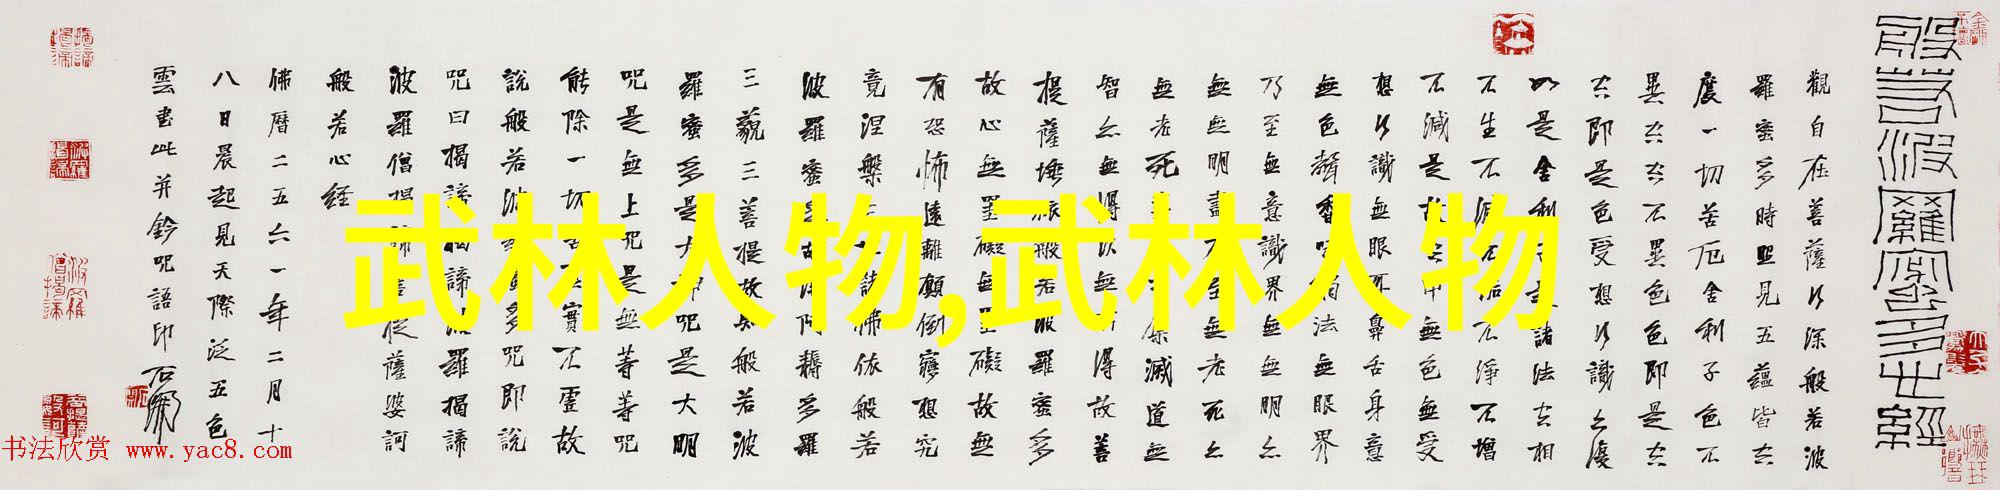 般若波羅蜜多心經
觀自在菩薩行深般若波
羅蜜多時照見五蘊皆空
度一切苦厄舍利子色不
異空空不異色色即是空
空即是色受想行識亦復
如是舍利子是諸法空相
不生不滅不垢不淨不增
不減是故空中無色無受
想行識無眼耳鼻舌身意
無色聲香味觸法無眼界
乃至無意識界無無明亦
無無明盡乃至無老死亦
無老死盡無苦集滅道無
智亦無得以無所得故菩
提薩埵依般若波羅蜜多
故心無罣礙無罣礙故無
有恐怖遠離顛倒夢想究
竟涅槃三世諸佛依般若
波羅蜜多故得阿耨多羅
三藐三菩提故知般若波
羅蜜多是大神咒是大明
咒是無上咒是無等等咒
能除一切苦真實不虛故
說般若波羅蜜多咒即說
咒曰揭諦揭諦波羅揭諦
波羅僧揭諦菩提薩婆訶
般若心経
佛曆二五六一年二月十
八日晨起見天際泛五色
雲書此并鈐咒語印
武林人物,武林人物
书法欣赏 www.yac8.com